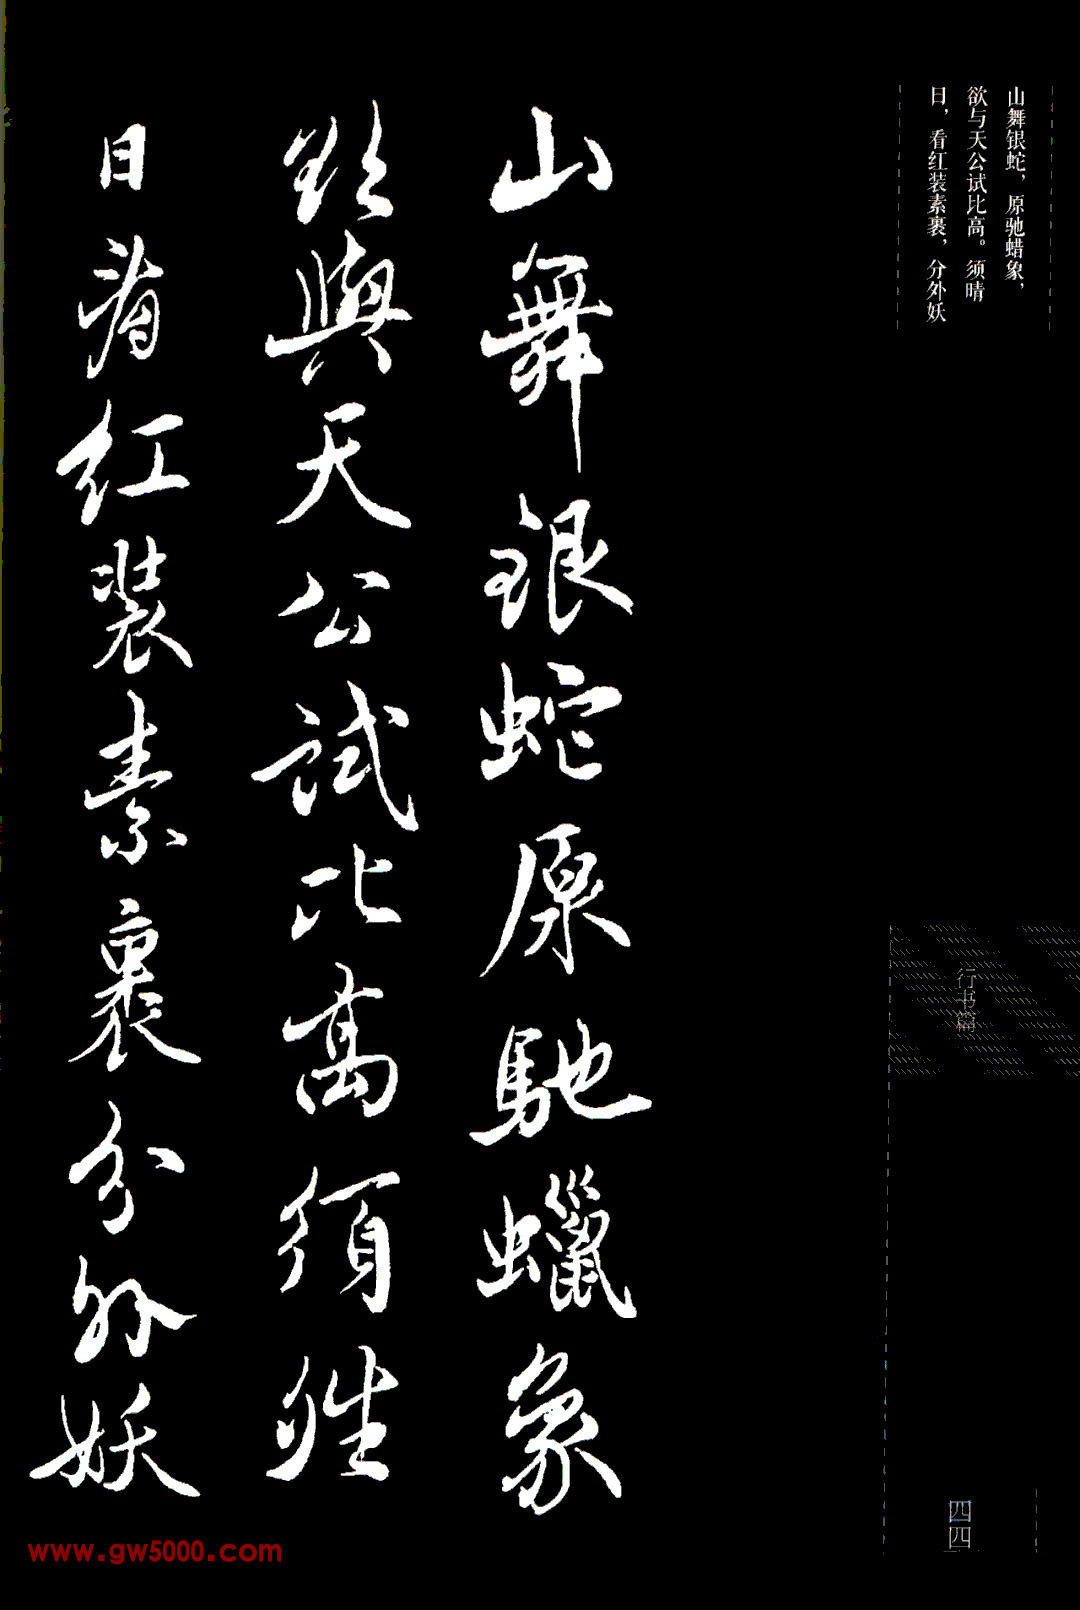 山舞银蛇，原驰蜡象，
欲与天公试比高。须晴
日，看红装素裹，分外妖
山舞銀蛇原馳蠟象
欲與天公試比高須晴
日看红装素裹分外妖
行书篇
四四
www.gw5000.com